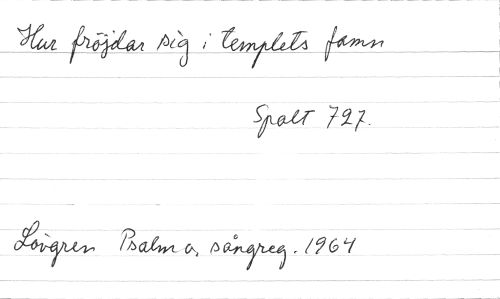 Hur fröjdar sig i templets famn
Spalt 727.
Lövgren Psalm o. sångreg. 1964